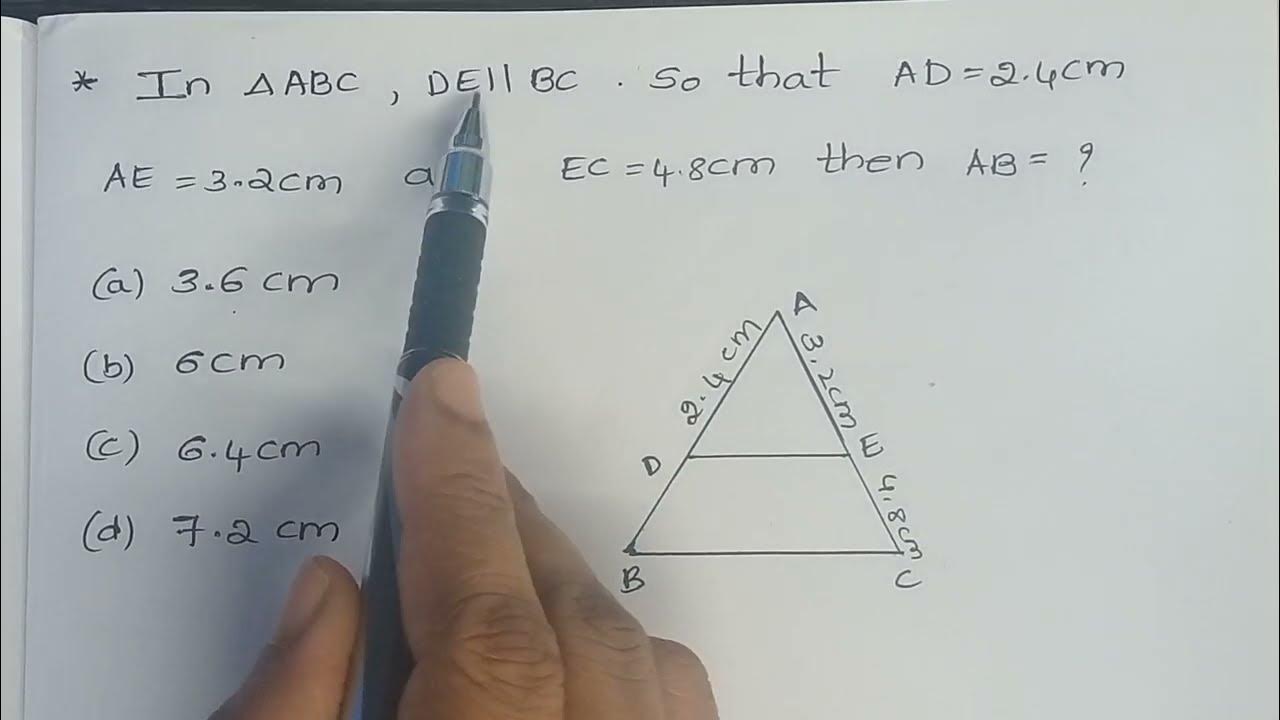 * In △ABC, DE || BC . So that AD = 2.4cm
AE = 3.2cm EC = 4.8cm then AB = ?
(a) 3.6 cm
(b) 6cm
(c) 6.4cm
(d) 7.2 cm
A
2.4 cm
3.2cm
D
E
4.8cm
B
C